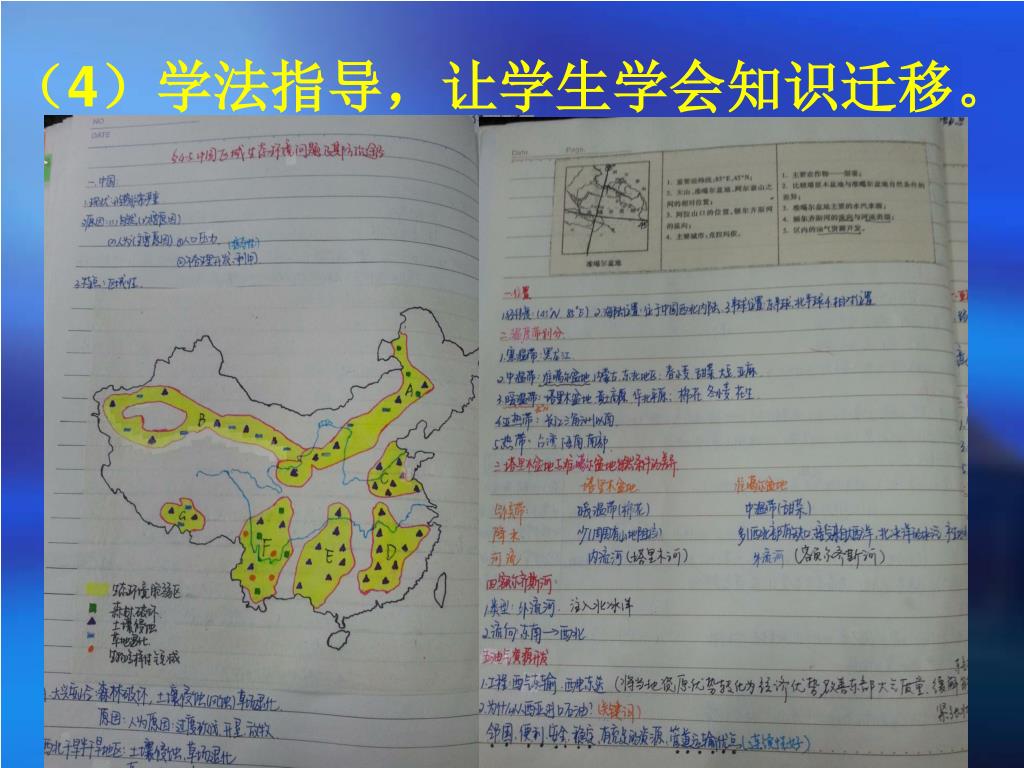 （4）学法指导，让学生学会知识迁移。
NO
DATE
§4.5 中国区域生态环境问题及其防治途径
一.中国:
1.现状:
2.原因:(1)自然(次要原因)
(2)人为(主要原因) ①人口压力
②不合理开发、利用
3.特点:区域性
A
B
C
G
F
E
D
生态环境脆弱区
森林破坏
土壤侵蚀
草地退化
生物多样性减
1.大兴安岭:森林破坏,土壤侵蚀
原因:人为原因:过度砍伐,开垦,放牧
西北干旱半干旱地区:土壤侵蚀,草场退化
Date Page
准噶尔盆地
1. 重要经纬线：85°E,45°N；
2. 天山、准噶尔盆地、阿尔泰山之
间的相对位置；
3. 阿拉山口的位置，额尔齐斯河
的流向；
4. 主要城市：克拉玛依。
1. 主要农作物——甜菜；
2. 比较塔里木盆地与准噶尔盆地自然条件的
差异；
3. 准噶尔盆地主要的水汽来源；
4. 额尔齐斯河的流向与河流类型；
5. 区内的油气资源开发。
一.位置
1.经纬度:(45°N 85°E) 2.海陆位置:位于中国西北内陆 3.半球位置:东半球,北半球 4.相对位置
二.温度带划分
1.寒温带:黑龙江
2.中温带:准噶尔盆地,内蒙古,东北地区: 春小麦 甜菜 大豆 亚麻
3.暖温带:塔里木盆地 黄土高原 华北平原: 棉花 冬小麦 花生
4.亚热带:
5.热带:台湾 海南 南部
三.塔里木盆地与准噶尔盆地自然条件的差异
塔里木盆地 准噶尔盆地
温度带 暖温带(棉花) 中温带(甜菜)
降水 少(周围有山地阻挡) 多(西北部有缺口,
河流 内流河(塔里木河) 外流河 (额尔齐斯河)
四.额尔齐斯河:
1.类型:外流河. 注入北冰洋
2.流向:东南→西北
五.油气资源开发
1.工程:西气东输. 西电东送 (将当地资源优势转化为经济优势,改善东部大气质量,缓解
2.为什么从西亚进口石油? (关键词)
邻国,便利,安全,稳定,有充足的资源,管道运输优点(连续性好)